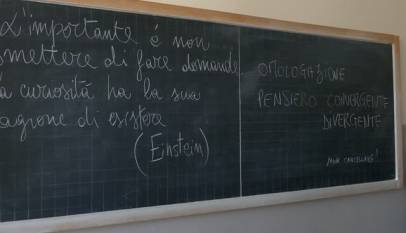 L'importante è non
smettere di fare domande
a curiosità ha la sua
agione di esistere
(Einstein)
OMOLOGAZIONE
PENSIERO CONVERGENTE
DIVERGENTE
NON CANCELLARE!